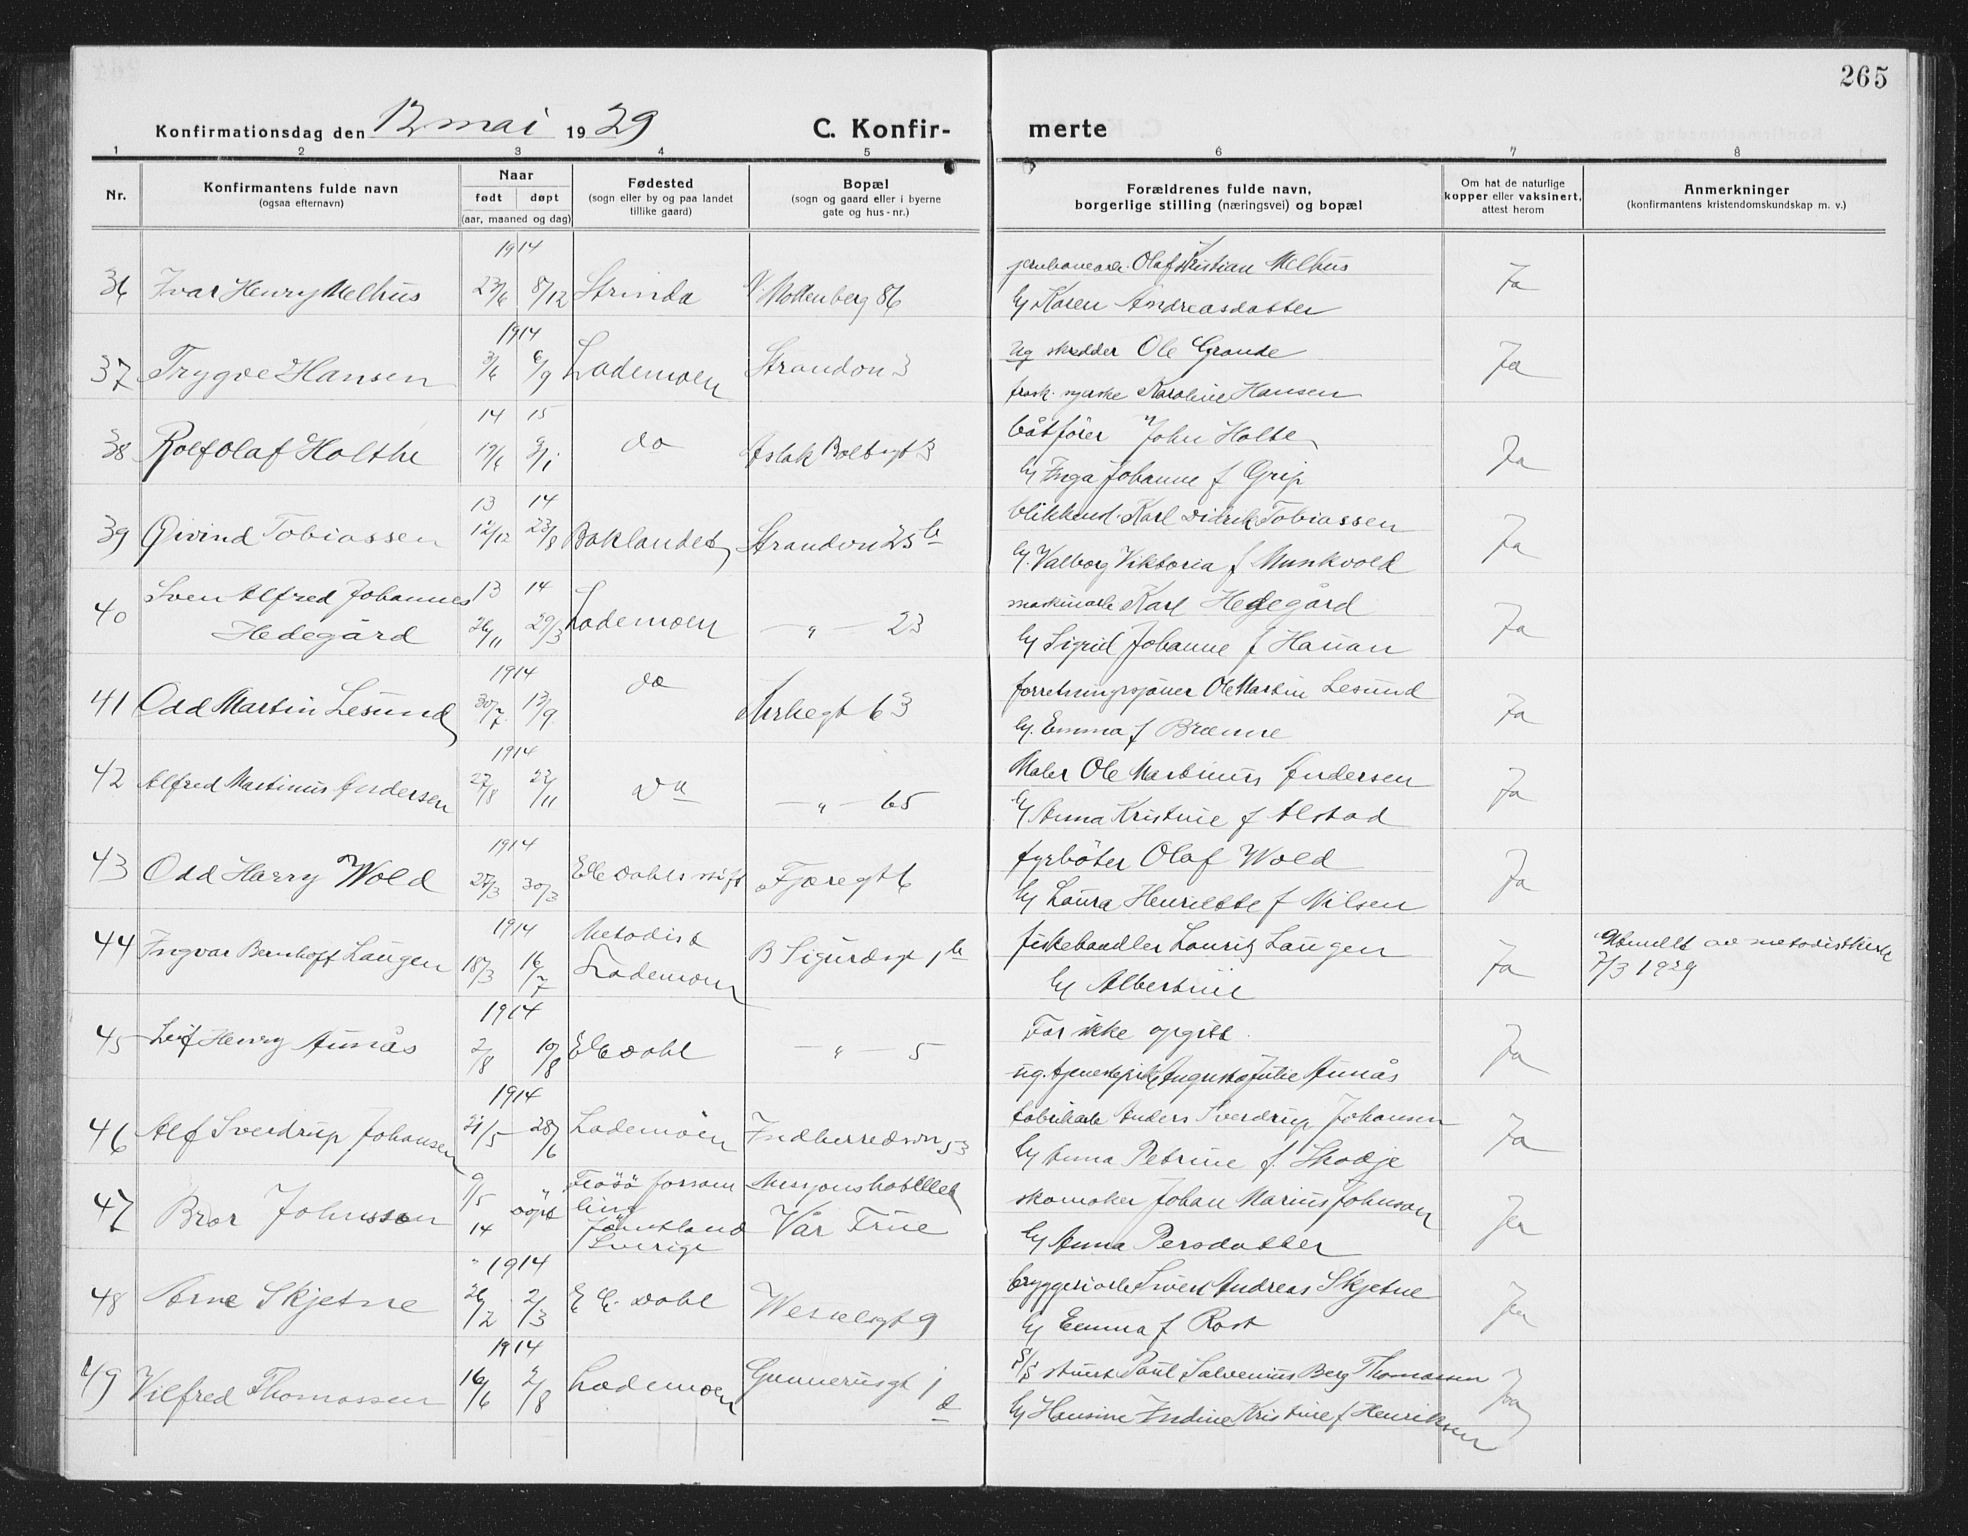 265
Konfirmationsdag den 12 mai 1929
C. Konfirmerte
1 2 3 4 5 6 7 8
Nr.
Konfirmantens fulde navn
(ogsaa efternavn)
Naar
født døpt
(aar, maaned og dag)
Fødested
(sogn eller by og paa landet
tillike gaard)
Bopæl
(sogn og gaard eller i byerne
gate og hus-nr.)
Forældrenes fulde navn,
borgerlige stilling (næringsvei) og bopæl
Om hat de naturlige
kopper eller vaksinert,
attest herom
Anmerkninger
(konfirmantens kristendomskundskap m. v.)
1914
36 Ivar Henry Melhus 23/6 8/12 Strinda N. Møllenberg 86
Olaf Kristian Melhus
Karen Andreasdatter
Ja
1914
37 Trygve Hansen 3/6 6/9 Lademoen Strandvn 3
ug skrædder Ole Grande
frask. syerske Karoline Hansen
Ja
14 15
38 Rolf Olaf Holthe 19/6 3/1 do Aslak Boltsgt 3
båtfører John Holte
Inga Johanne f Grip
Ja
13 14
39 Øivind Tobiassen 12/12 23/8 Baklandet Strandvn 25 b
blikkensl. Karl Didrik Tobiassen
Valborg Viktoria f Munkvold
Ja
13 14
40 Sven Alfred Johannes
Hedegård 26/11 29/3 Lademoen — " — 23
maskinarb Karl Hedegård
Sigrid Johanne f Hauan
Ja
1914
41 Odd Martin Lesund 30/7 13/9 do Kirkegt 63
Ole Martin Lesund
Emma f Brænne
Ja
1914
42 Alfred Martinus Andersen 27/8 22/11 do — " — 65
Maler Ole Martinus Andersen
Anna Kristine f Alstad
Ja
1914
43 Odd Harry Wold 27/3 30/3 E C Dahls stift Fjæregt 6
fyrbøter Olaf Wold
Laura Henriette f Nilsen
Ja
1914
44 Ingvar Bernhoft Laugen 18/3 16/7 Metodist
Lademoen B Sigurdsgt 1 b
fiskehandler Lauritz Laugen
Albertine
Ja
Utmeldt av metodistkirke
7/3 1929
1914
45 Leif Henry Aunås 2/8 10/8 E C Dahl — " — 5
Far ikke opgitt.
ug. tjenestepike Augusta Julie Aunås
Ja
1914
46 Alf Sverdrup Johansen 21/5 28/6 Lademoen Indherredsvn 53
fabrikarb Anders Sverdrup Johansen
Anna Petrine f. Skodje
Ja
47 Bror Johnsson 9/5 14 döpt Frösö forsamling
Jämtland
Sverige
Missjonshotellet
Vår Frue
skomaker Johan Marius Johnson
Anna Persdatter
Ja
1914
48 Arne Skjetne 26/2 2/3 E C. Dahl Wesselsgt 9
bryggeriarb Sivert Andreas Skjetne
Emma f Rost
Ja
1914
49 Vilfred Thomassen 16/6 2/8 Lademoen Gunnerusgt 1 a
S/S stuert Paul Salvenius Berg Thomassen
Hansine Indine Kristine f Henriksen
Ja